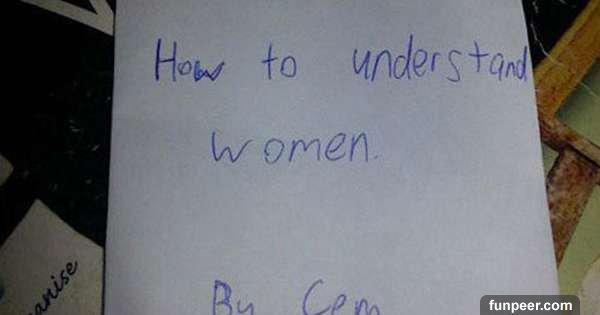 How to understand
women.
By Cem
anise
funpeer.com